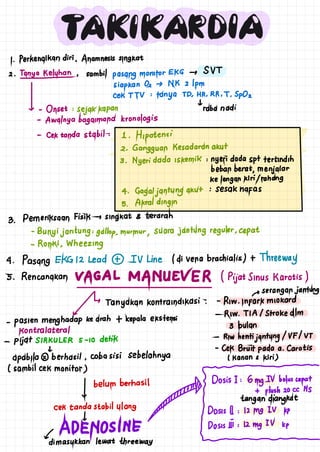 TAKIKARDIA
1. Perkenalkan diri, Anamnesis singkat
2. Tanya Keluhan, sambil pasang monitor EKG → SVT
siapkan O2 → NK 2 lpm
cek TTV : tanya TD, HR, RR, T, SpO2
↓
raba nadi
- Onset : sejak kapan
- Awalnya bagaimana kronologis
- Cek tanda stabil :
1. Hipotensi
2. Gangguan Kesadaran akut
3. Nyeri dada iskemik : nyeri dada spt tertindih
beban berat, menjalar
ke lengan kiri/rahang
4. Gagal jantung akut : sesak napas
5. Akral dingin
3. Pemeriksaan Fisik → singkat & terarah
- Bunyi jantung : gallop, murmur, suara jantung reguler, cepat
- Ronki, Wheezing
4. Pasang EKG 12 Lead ⊕ IV Line (di vena brachialis) + Threeway
5. Rencanakan VAGAL MANUEVER (Pijat Sinus Karotis)
Tanyakan kontraindikasi :
→ serangan jantung
- Riw. Infark miokard
- Riw. TIA / Stroke dlm
3 bulan
- Riw henti jantung / VF / VT
- Cek Bruit pada a. Carotis
(kanan & kiri)
- pasien menghadap ke arah + kepala ekstensi
Kontralateral
- Pijat SIRKULER 5-10 detik
apabila ⊖ berhasil, coba sisi sebelahnya
(sambil cek monitor)
↓ belum berhasil
cek tanda stabil ulang
↓
ADENOSINE
↳ dimasukkan lewat threeway
Dosis I : 6 mg IV bolus cepat
+ flush 20 cc NS
tangan diangkat
Dosis II : 12 mg IV kp
Dosis III : 12 mg IV kp